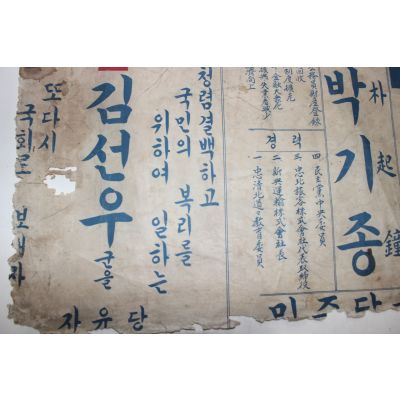 朴起鐘
박기종
경력
四 民主黨中央委員
三 忠北旅客株式會社代表取締役
二 新興運輸株式會社長
一 忠淸北道敎育委員
민주당
청렴결백하고
국민의 복리를
위하여 일하는
김선우 군을
또다시
국회로 보내자
자유당